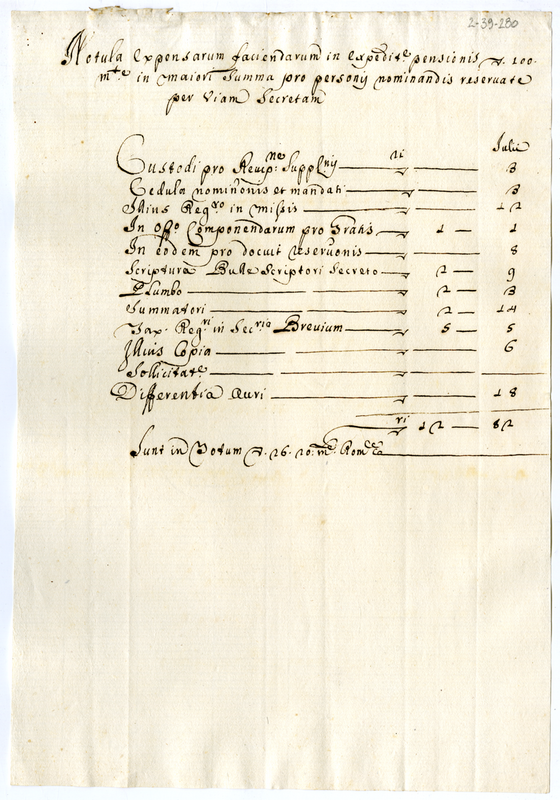 2-39-280
Notula expensarum faciendarum in expedit.e pensionis 100.
m.te in maiori summa pro personis nominandis reservate
per viam Secretam
Julii
Custodi pro Recip.ne Suppl.nis 3
Cedula nominonis et mandati 3
Illius Reg.ro in missis 12
In off.o Componendarum pro Gratis 1 1
In eodem pro docuit reservonis 8
Scriptura Bulle Scriptori Secreto 2 9
Plumbo 2 3
Summatori 2 14
Tax. Reg.ri in Sec.ria Brevium 5 5
Illius Copia 6
Sollicitat.e
Differentia Auri 18
12 82
Sunt in Totum 26. 20. m.te Rom.e